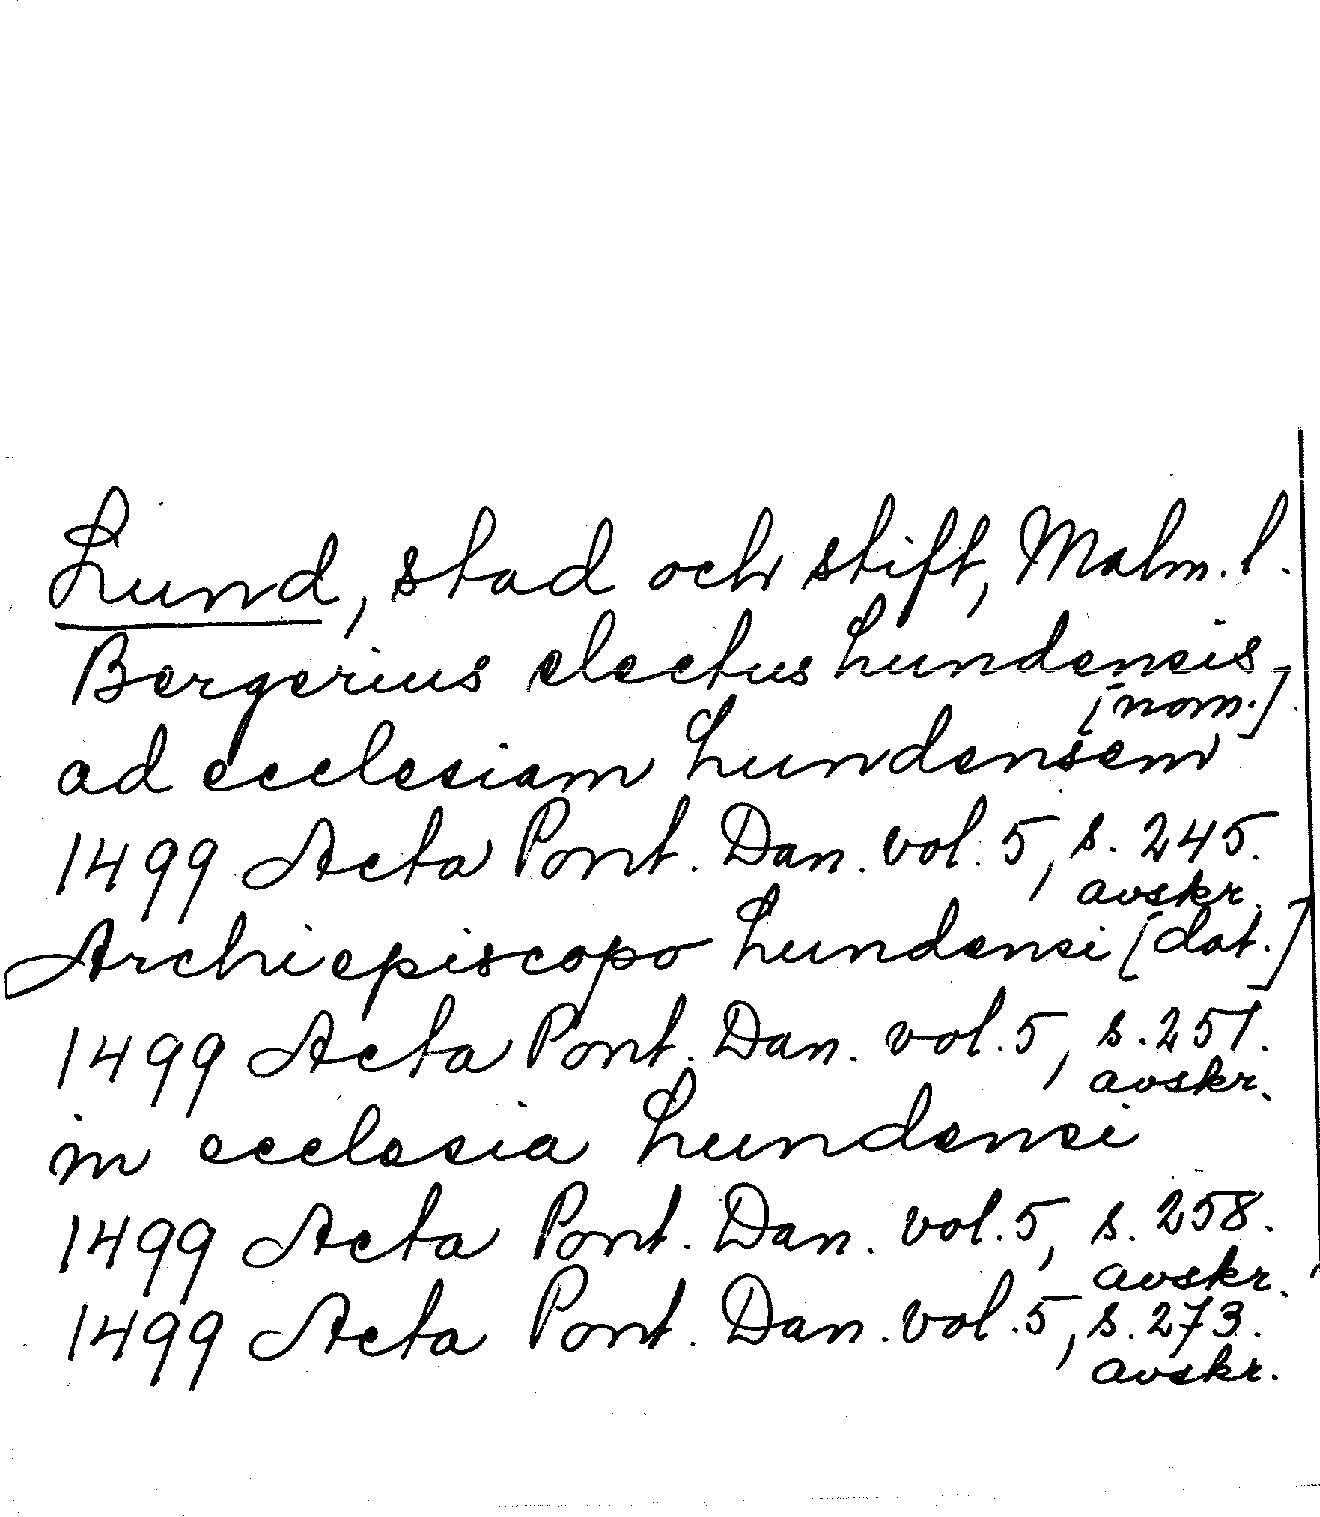 Lund, stad och stift, Malm. l.
Bergerius electus Lundensis
[nom.]
ad ecclesiam Lundensem
1499 Acta Pont. Dan. vol. 5, s. 245.
avskr.
Archiepiscopo Lundensi [dat.]
1499 Acta Pont. Dan. vol. 5, s. 251.
avskr.
in ecclesia Lundensi
1499 Acta Pont. Dan. vol. 5, s. 258.
avskr.
1499 Acta Pont. Dan. vol. 5, s. 273.
avskr.